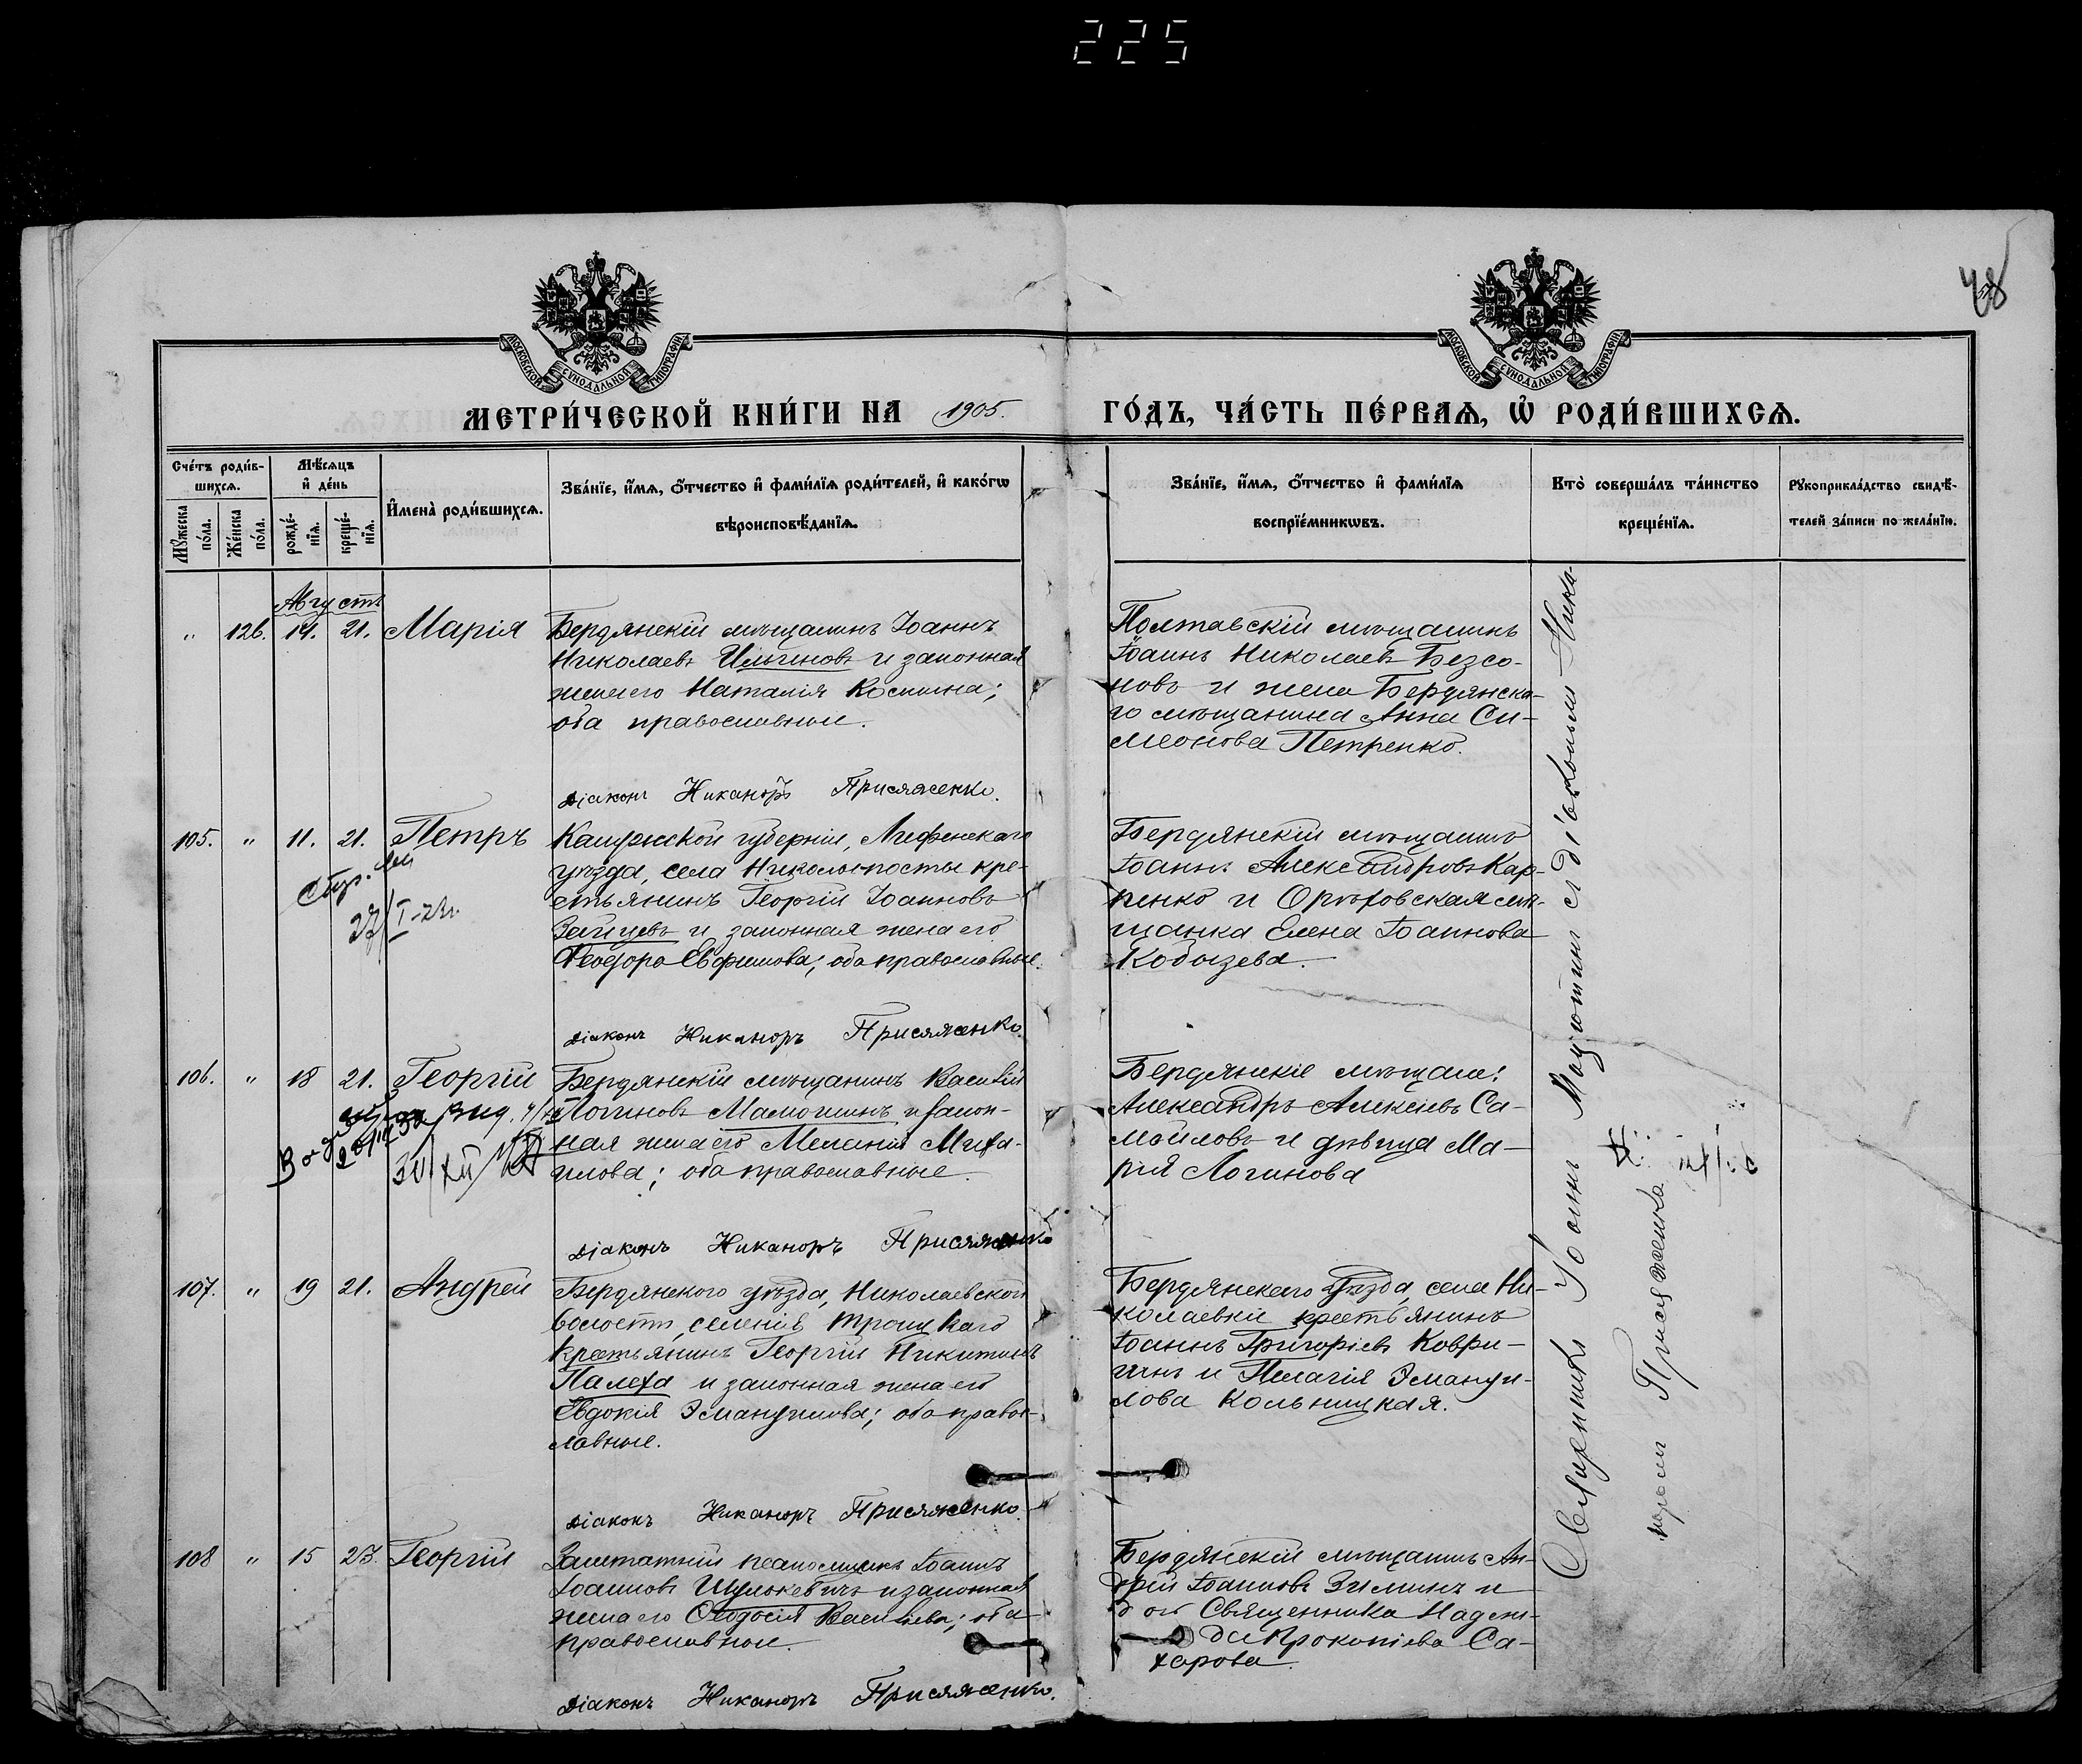 225
48
МОСКОВСКОЙ СѴНОДАЛЬНОЙ ТИПОГРАФІИ
МОСКОВСКОЙ СѴНОДАЛЬНОЙ ТИПОГРАФІИ
МЕТРИ́ЧЕСКОЙ КНИ́ГИ НА 1905. ГО́ДЪ, ЧА́СТЬ ПЕ́РВАѦ, Ѽ РОДИ́ВШИХСѦ.
Сче́тъ роди́в-
шихсѧ.
Мꙋ́жеска по́ла.
Же́нска по́ла.
Мѣ́сѧцъ
и҆ де́нь
рожде́-
нїѧ.
креще́-
нїѧ.
И҆мена̀ роди́вшихсѧ.
Зва́нїе, и҆́мѧ, ѻ҆́тчество и҆ фами́лїѧ роди́телей, и҆ како́гѡ
вѣроисповѣ́данїѧ.
Зва́нїе, и҆́мѧ, ѻ҆́тчество и҆ фами́лїѧ
воспрїе́мникѡвъ.
Кто̀ соверша́лъ та́инство
креще́нїѧ.
Рꙋкоприкла́дство свидѣ́-
телей за́писи по жела́нїю.
Августъ
" 126. 14. 21. Марія
Бердянскій мѣщанинъ Іоаннъ
Николаевъ Ильиновъ и законная
жена его Наталія Космина;
оба православные.
Діаконъ Никаноръ Присяженко.
Полтавскій мѣщанинъ
Іоаннъ Николаевъ Безсо-
новъ и жена Бердянска-
го мѣщанина Анна Си-
меонова Петренко.
105. " 11. 21. Петръ
27/I-23г.
Калужской губерніи,
уѣзда, села кре-
стьянинъ Георгій Іоанновъ
Зайцевъ и законная жена его
Ѳеодора Евфимова; оба православные.
Діаконъ Никаноръ Присяженко.
Бердянскій мѣщанинъ
Іоаннъ Александровъ Кар-
пенко и Орѣховская мѣ-
щанка Елена Іоаннова
Кобызева.
106. " 18 21. Георгій
Бердянскій мѣщанинъ Василій
Логиновъ Мамошинъ и закон-
ная жена его Меланія Миха-
илова; оба православные.
Діаконъ Никаноръ Присяженко
Бердянскіе мѣщане:
Александръ Алексіевъ Са-
мойловъ и дѣвица Ма-
рія Логинова
107. " 19 21. Андрей
Бердянского уѣзда, Николаевской
волости, селенія Троицкаго
крестьянинъ Георгій Никитинъ
Палеха и законная жена его
Евдокія Эмануилова; оба правос-
лавные.
Діаконъ Никаноръ Присяженко.
Бердянскаго уѣзда, села Ни-
колаевки крестьянинъ
Іоаннъ Григоріевъ Коври-
гинъ и Пелагія Эмануи-
лова Кольницкая.
108 " 15 23. Георгій
Заштатный псаломщикъ Іоаннъ
Іоанновъ Шулькевичъ и законная
жена его Ѳеодосія Васильева; оба
православные.
Діаконъ Никаноръ Присяженко.
Бердянскій мѣщанинъ Ан-
дрей Іоанновъ Зиминъ и
Священника Надеж-
да Прокопіева Са-
харова.
Священникъ Іоаннъ съ діакономъ Ника-
норомъ Присяженко